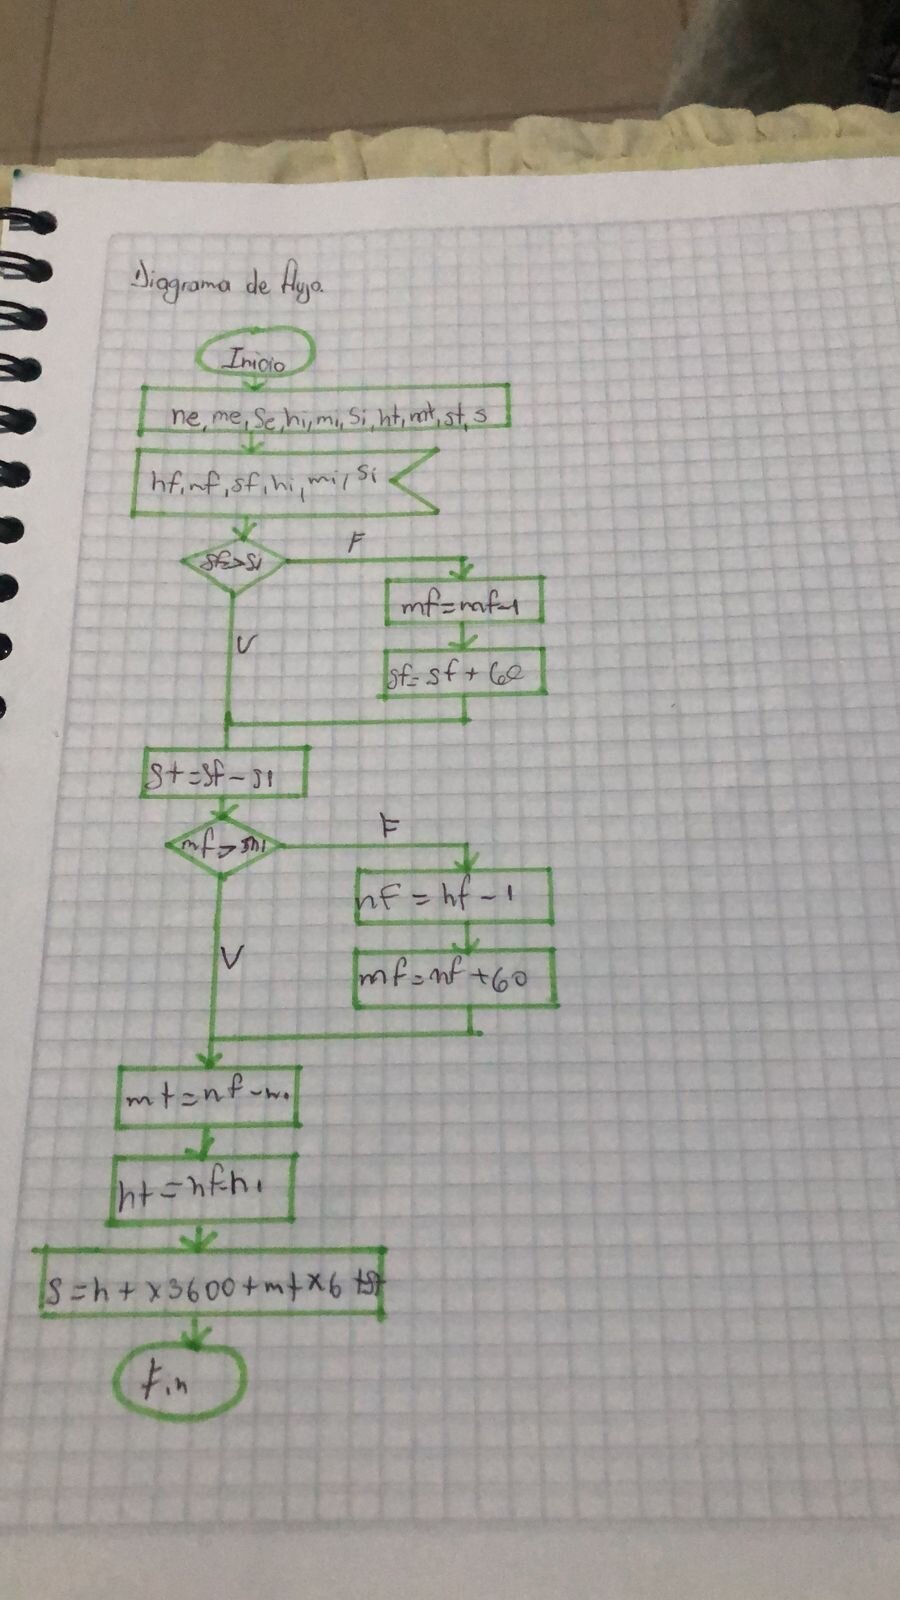 Diagrama de flujo.
Inicio
he, me, Se, hi, mi, Si, ht, mt, st, s
hf, mf, sf, hi, mi, si
F
V
mf=mf-1
sf=sf+60
st=sf-si
mf>mi
F
V
hF=hf-1
mf=mf+60
mt=mf-mi
ht=hf-hi
S=h+x3600+mtx6+st
Fin